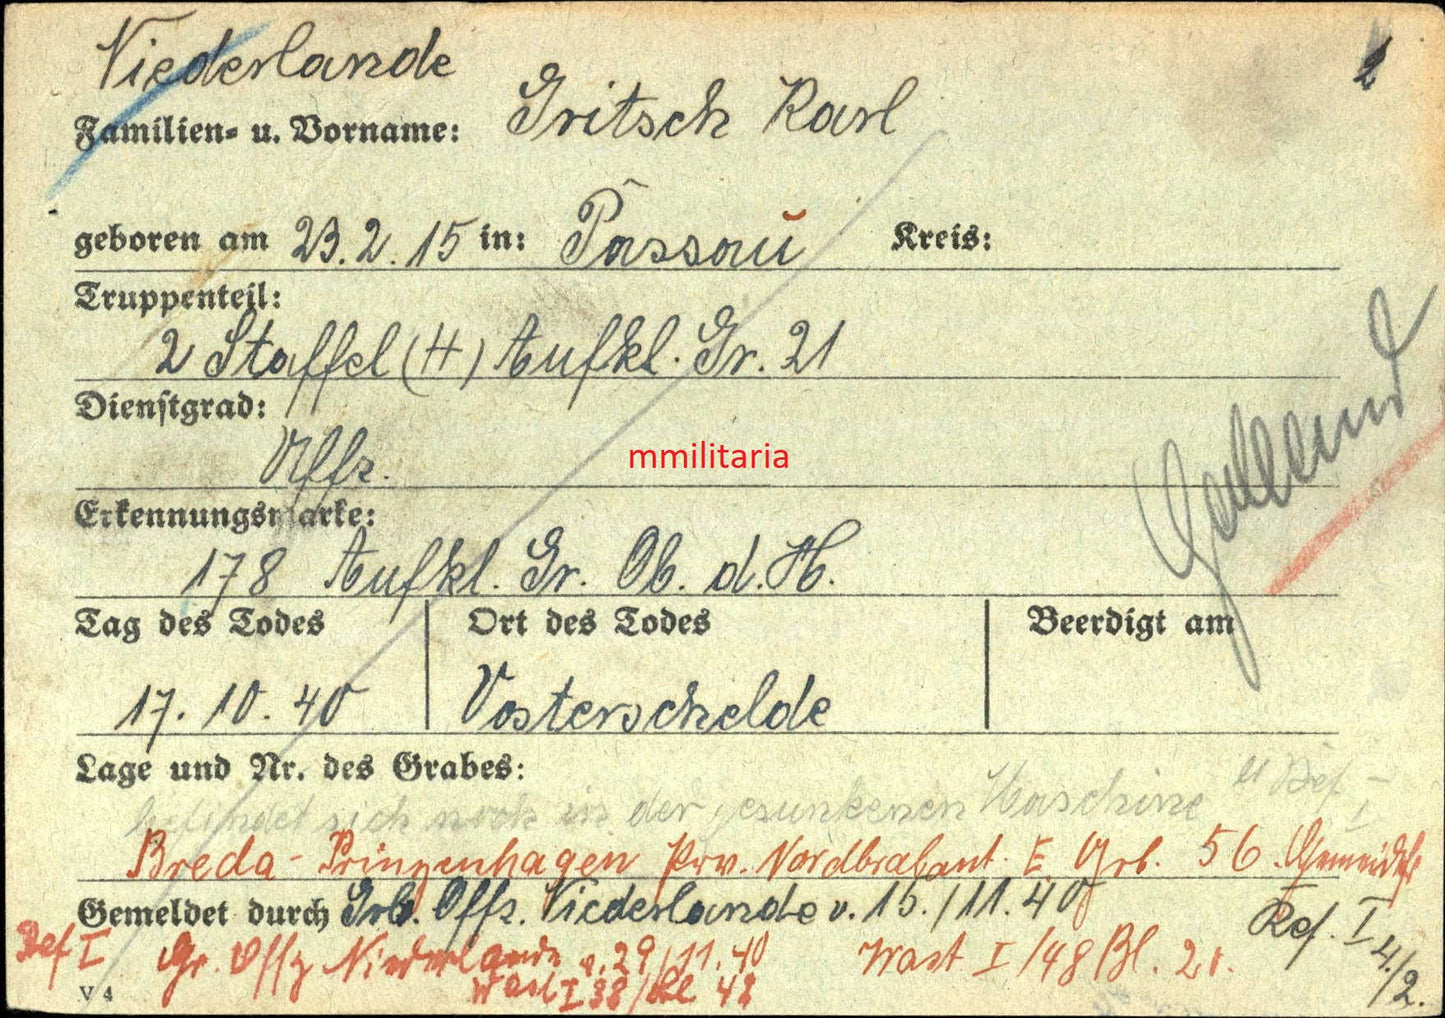 Niederlande
2
Familien- u. Vorname: Gritsch Karl
geboren am 23.2.15 in: Passau Kreis:
Truppenteil:
2 Staffel (H) Aufkl. Gr. 21
Dienstgrad:
Uffz.
mmilitaria
Erkennungsmarke:
178 Aufkl. Gr. Ob. d. H.
Tag des Todes Ort des Todes Beerdigt am
17. 10. 40 Oosterschelde
Lage und Nr. des Grabes:
befindet sich noch in der gesunkenen Maschine
Breda - Prinzenhagen Prv. Nordbrabant. E. Grb. 56
Gemeldet durch Grb. Offz. Niederlande v. 15./11.40 Ref. I 4/2.
Ref I Gr. Offz Niederlande v. 29/11.40 Wast I/48 Bl. 21.
Wast I 38/Bl 42
V 4